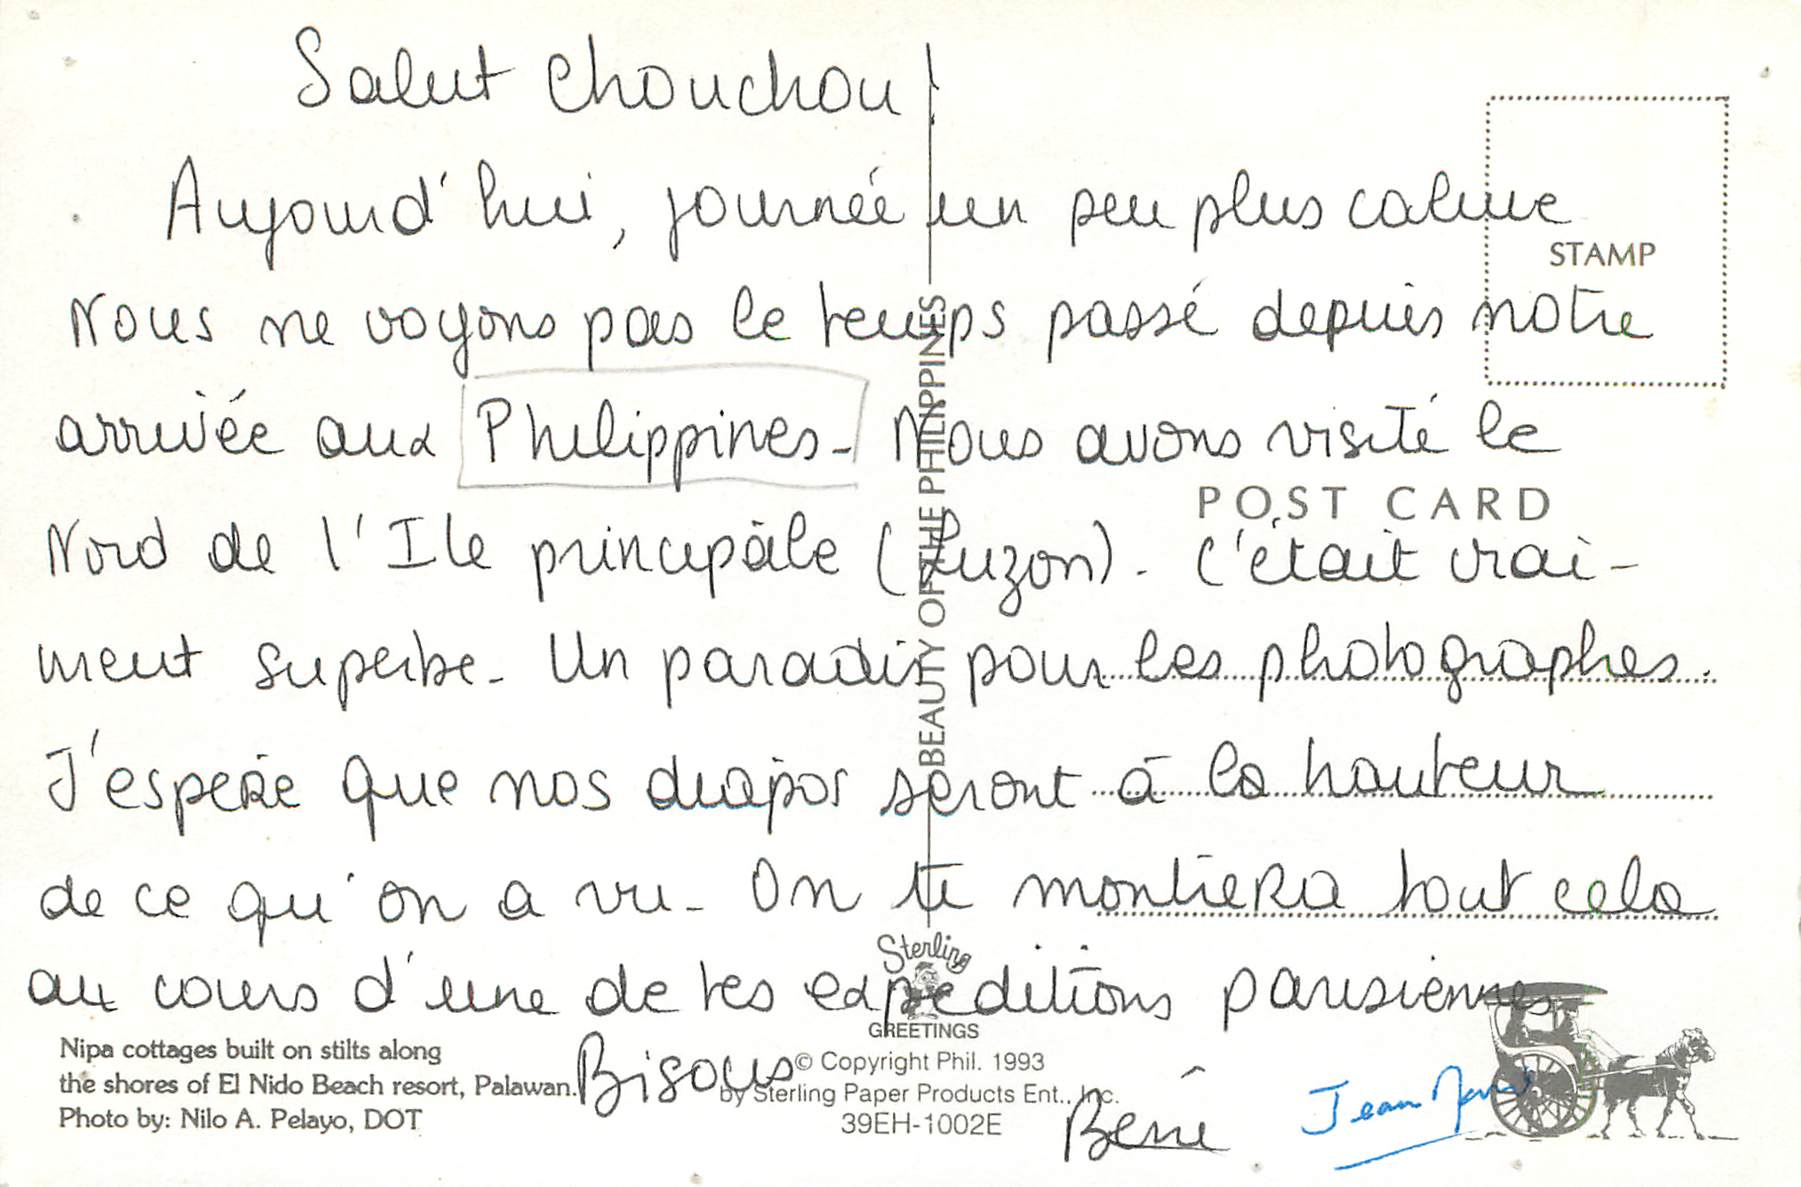 Salut Chouchou!
Aujourd'hui, journée un peu plus calme
Nous ne voyons pas le temps passé depuis notre
arrivée aux Philippines. Nous avons visité le
Nord de l'Ile principâle (Luzon). C'était vrai-
ment superbe. Un paradis pour les photographes.
J'espère que nos diapos seront à la hauteur
de ce qu'on a vu. On te montrera tout cela
au cours d'une de tes expéditions parisiennes
Bisous
Béné
Jean Marie
STAMP
POST CARD
BEAUTY OF THE PHILIPPINES
Sterling
GREETINGS
Nipa cottages built on stilts along
the shores of El Nido Beach resort, Palawan.
Photo by: Nilo A. Pelayo, DOT
© Copyright Phil. 1993
by Sterling Paper Products Ent., Inc.
39EH-1002E